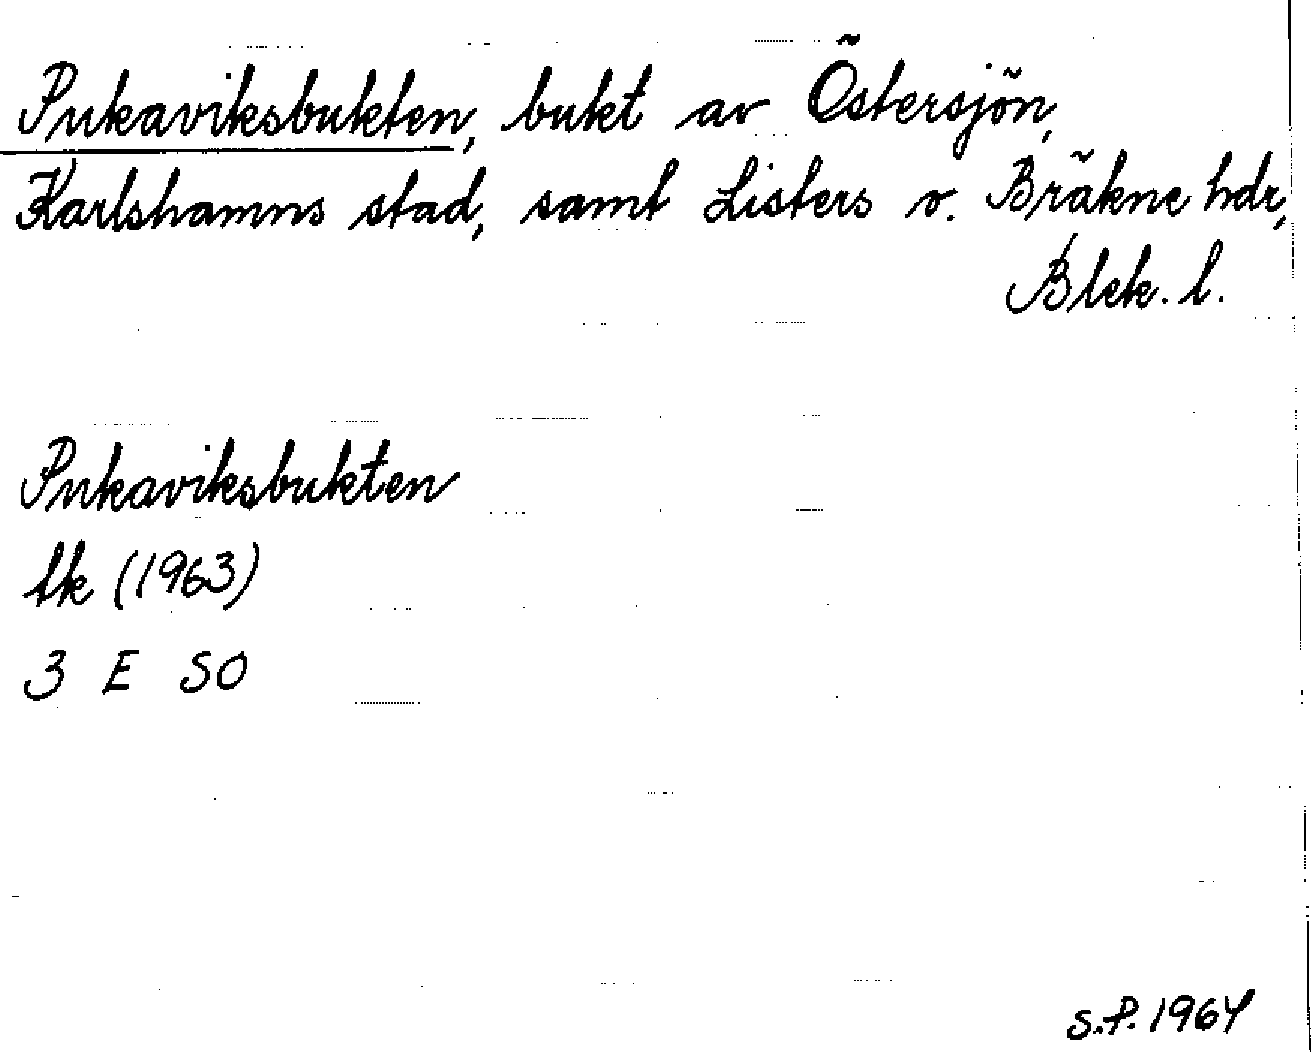 Pukaviksbukten, bukt av Östersjön,
Karlshamns stad, samt Listers o. Bräkne hdr,
Blek. l.
Pukaviksbukten
tk (1963)
3 E SO
S.P. 1964